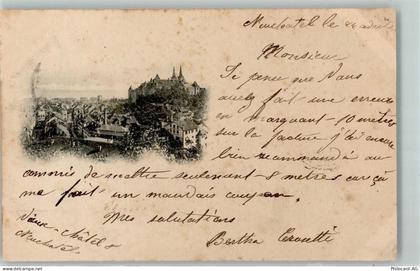 Neuchatel le 22 août
Monsieur
Je pense que Vous
avez fait une erreur
en marquant - 10 mètres
sur la facture j'ai encore
bien recommandé au
commis de mettre seulement - 8 mètres car ça
me fait un mauvais coupon.
Mes salutations
Vieux-Châtel 8
Neuchatel
Bertha